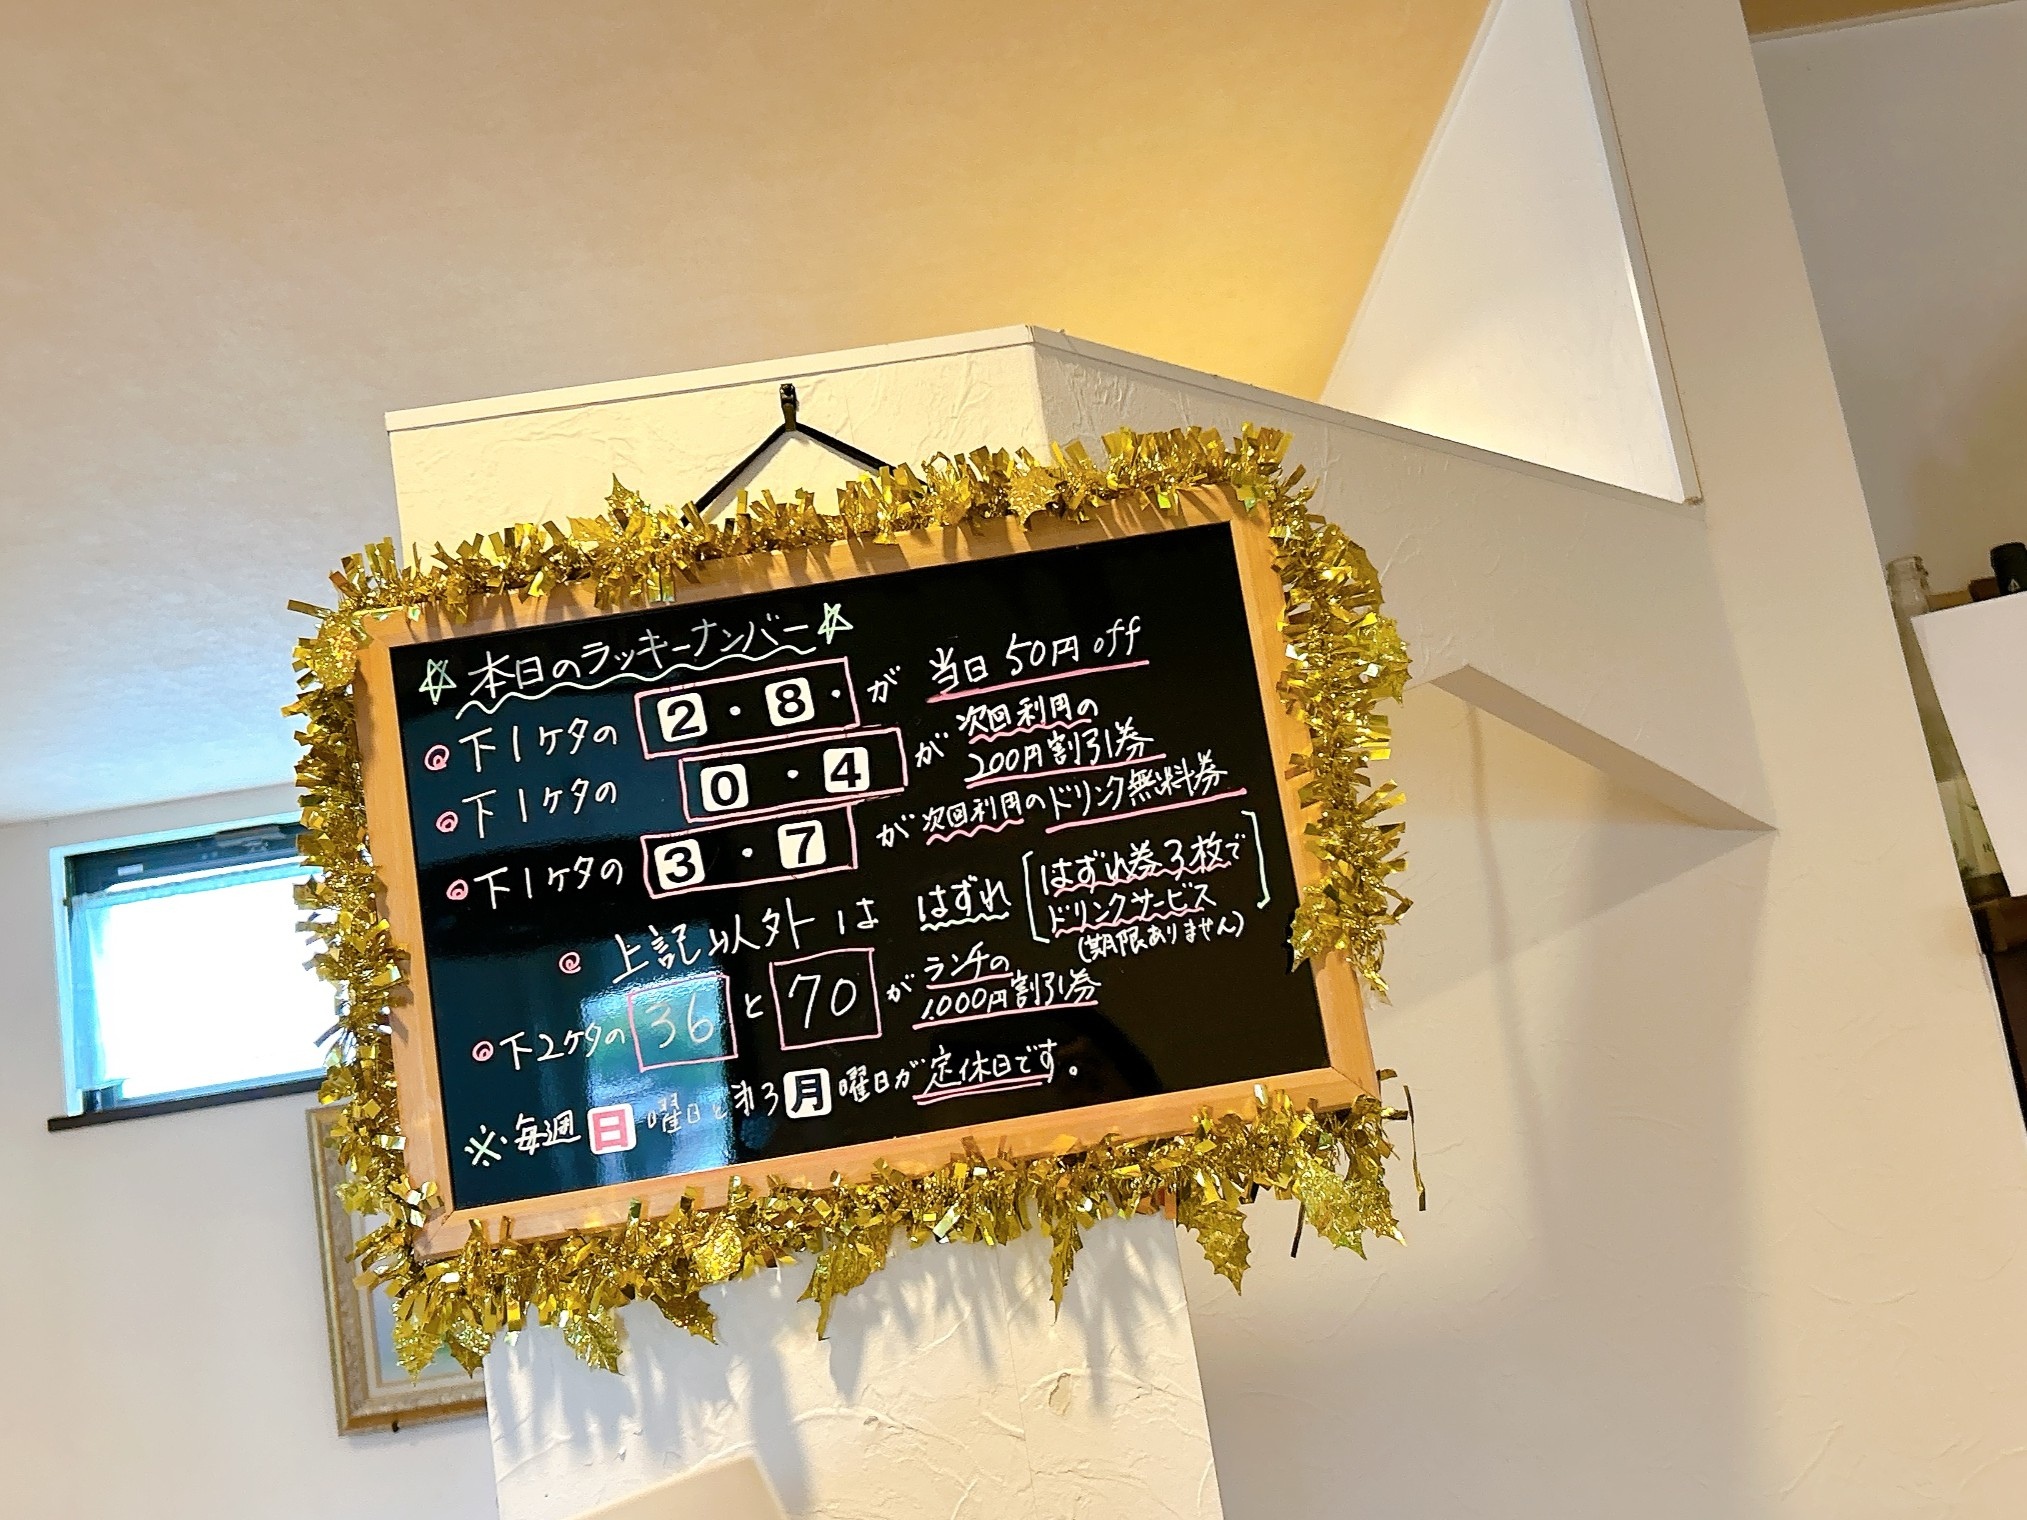 ☆本日のラッキーナンバー☆
◎下1ケタの 2・8・が 当日50円off
◎下1ケタの 0・4 が 次回利用の
200円割引券
◎下1ケタの 3・7 が 次回利用のドリンク無料券
◎上記以外は はずれ [はずれ券3枚で
ドリンクサービス]
(期限ありません)
◎下2ケタの 36 と 70 が ランチの
1,000円割引券
※毎週日曜日と第3月曜日が定休日です。